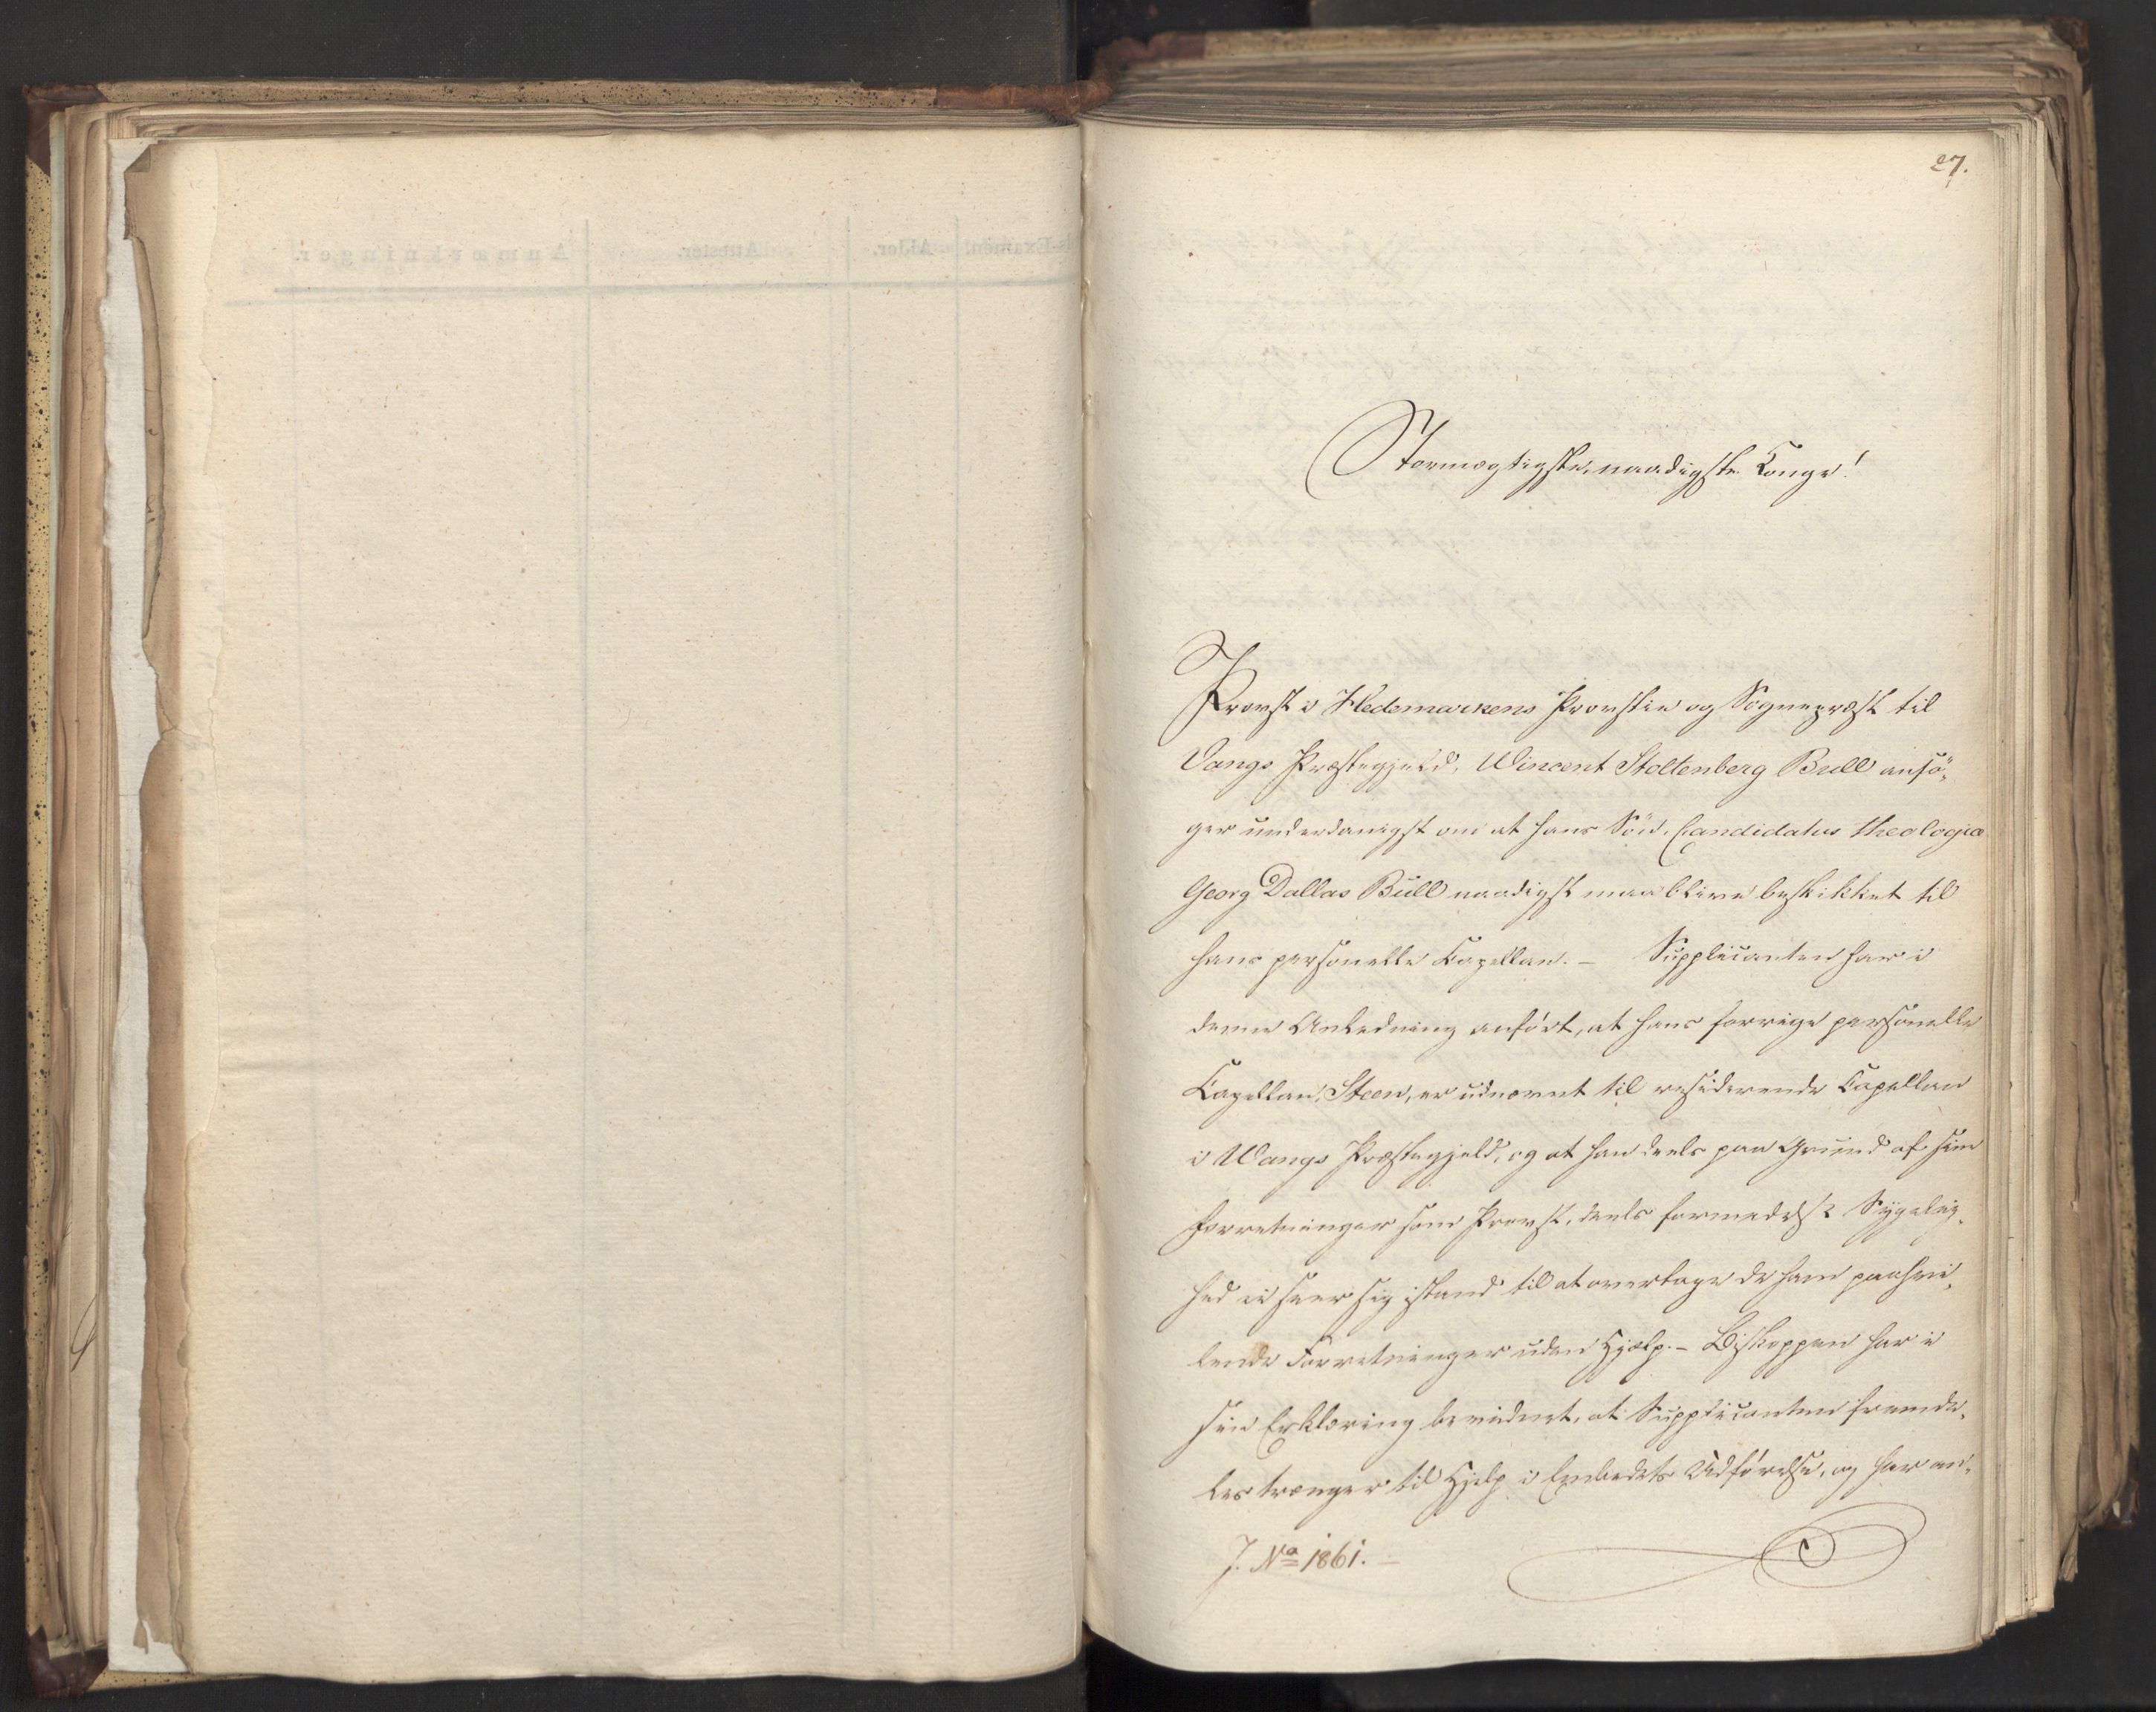 27.
Stormægtigste, naadigste Konge!
Provst i Hedemarkens Provstie og Sognepræst til
Vangs Præstegjeld, Wincent Stoltenberg Bull ansö-
ger underdanigst om at hans Sön, Candidatus theologiæ
Georg Dallas Bull naadigst maa blive beskikket til
hans personelle Capellan. – Supplicanten har i
denne Anledning anfört, at hans forrige personelle
Capellan, Steen, er udnævnt til residerende Capellan
i Wangs Præstegjeld, og at han deels paa Grund af sine
Forretninger som Provst, deels formedelst Sygelig-
hed ei seer sig istand til at overtage de ham paahvi-
lende Forretninger uden Hjælp. – Biskoppen har i
sin Erklæring bevidnet, at Supplicanten fremde-
les trænger til Hjelp i Embedets Udförelse, og har an-
J. No 1861.